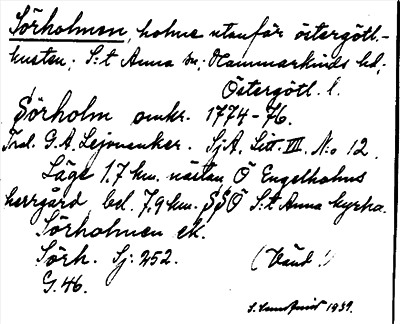 Sörholmen, holme utanför östergötl.-
kusten; S:t Anna sn; Hammarkinds hd;
Östergötl. l.
Sörholm omkr. 1774-76.
Trol. G. A. Lejonanker. SjA. Litt. III. N:o 12.
Läge 1.7 km. nästan Ö Engelholms
herrgård bel. 7.9 km. SSÖ S:t Anna kyrka.
Sörholmen ek.
Sörh. Sj: 252.
(Vänd!)
G. 46.
1939.